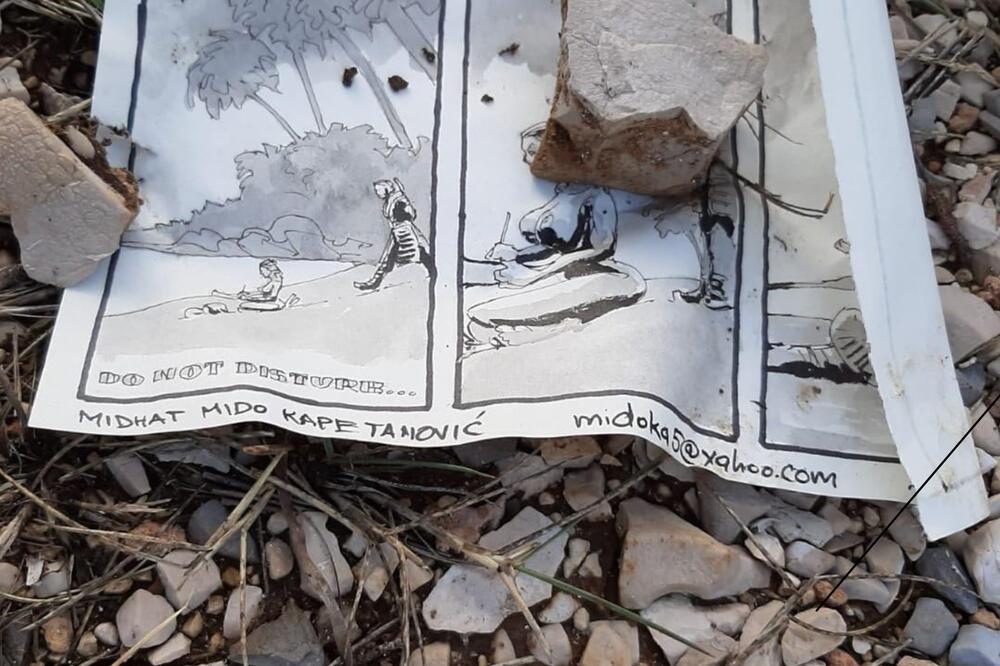 DO NOT DISTURB...
MIDHAT MIDO KAPETANOVIĆ midoka5@yahoo.com